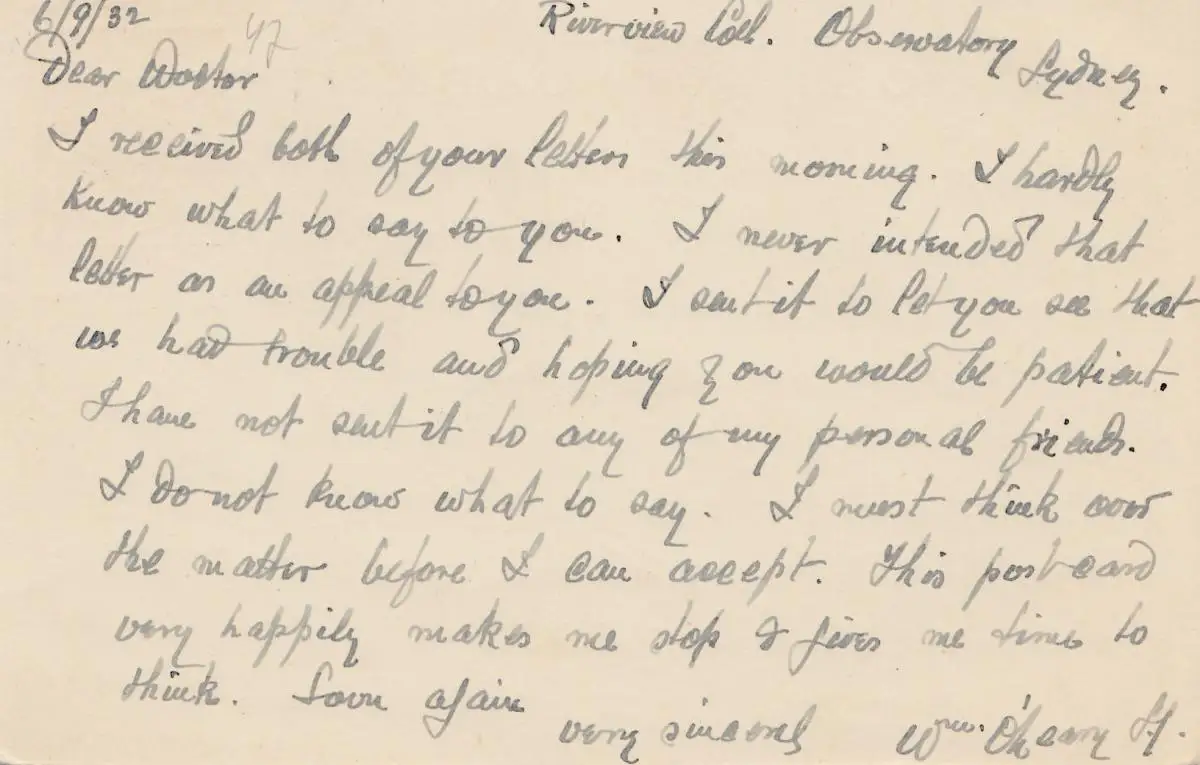 6/9/32 47 Riverview Coll. Observatory
Sydney.
Dear Doctor
I received both of your letters this morning. I hardly
know what to say to you. I never intended that
letter as an appeal to you. I sent it to let you see that
we had trouble and hoping you would be patient.
I have not sent it to any of my personal friends.
I do not know what to say. I must think over
the matter before I can accept. This postcard
very happily makes me stop & gives me time to
think. Soon again
very sincerely Wm. O'Leary SJ.